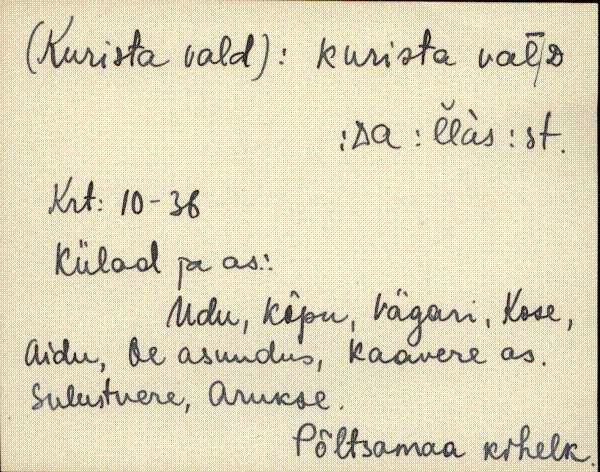 (Kurista vald): kurista val̄/D
:DA : l̆làs : st.
Krt: 10-36
Külad ja as.:
Udu, Kõpu, Vägari, Kose,
Aidu, Oe asundus, Kaavere as.
Sulustvere, Arukse.
Põltsamaa kihelk.